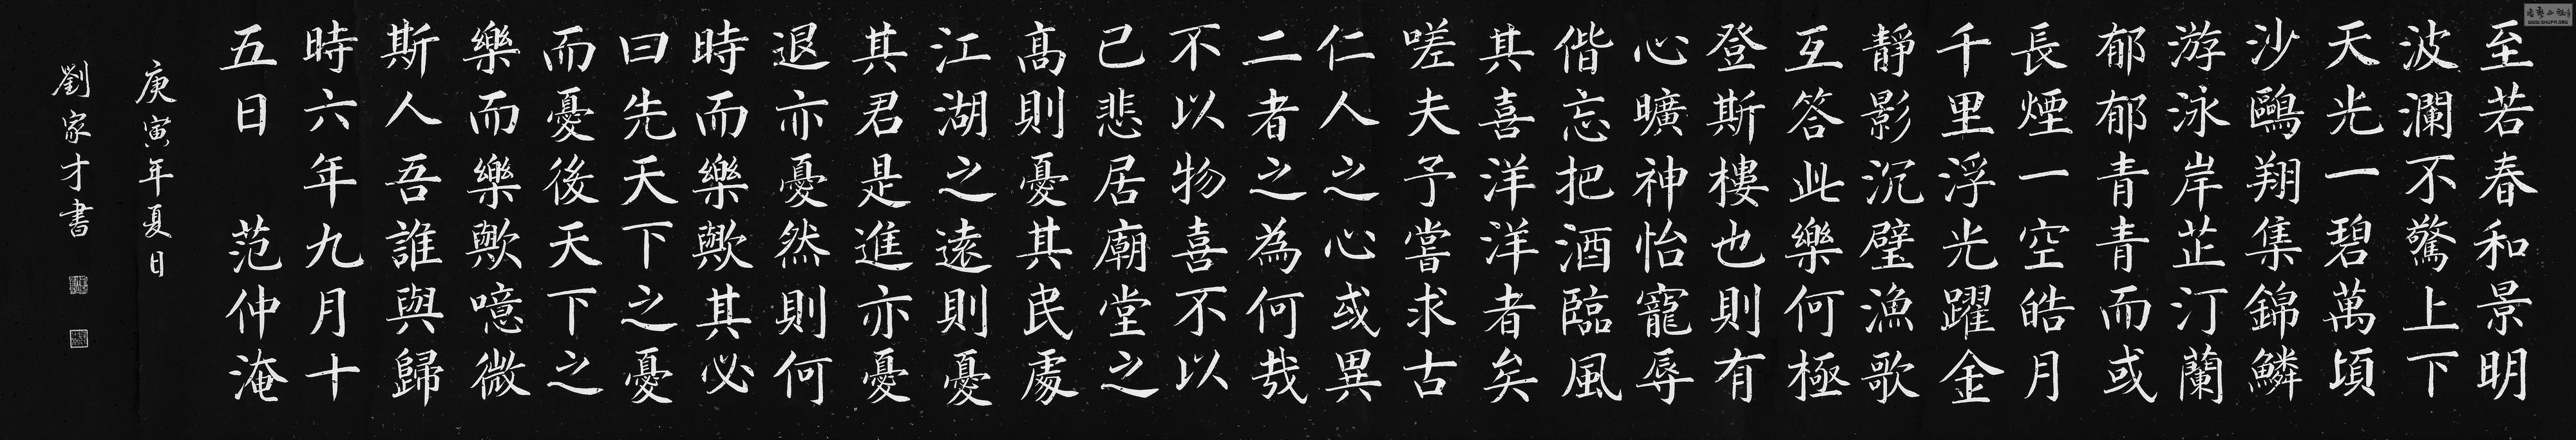 至若春和景明
波瀾不驚上下
天光一碧萬頃
沙鷗翔集錦鱗
游泳岸芷汀蘭
郁郁青青而或
長煙一空皓月
千里浮光躍金
靜影沉璧漁歌
互答此樂何極
登斯樓也則有
心曠神怡寵辱
偕忘把酒臨風
其喜洋洋者矣
嗟夫予嘗求古
仁人之心或異
二者之為何哉
不以物喜不以
己悲居廟堂之
高則憂其民處
江湖之遠則憂
其君是進亦憂
退亦憂然則何
時而樂歟其必
曰先天下之憂
而憂後天下之
樂而樂歟噫微
斯人吾誰與歸
時六年九月十
五日 范仲淹
庚寅年夏日
劉家才書
WWW.SHUFA.ORG